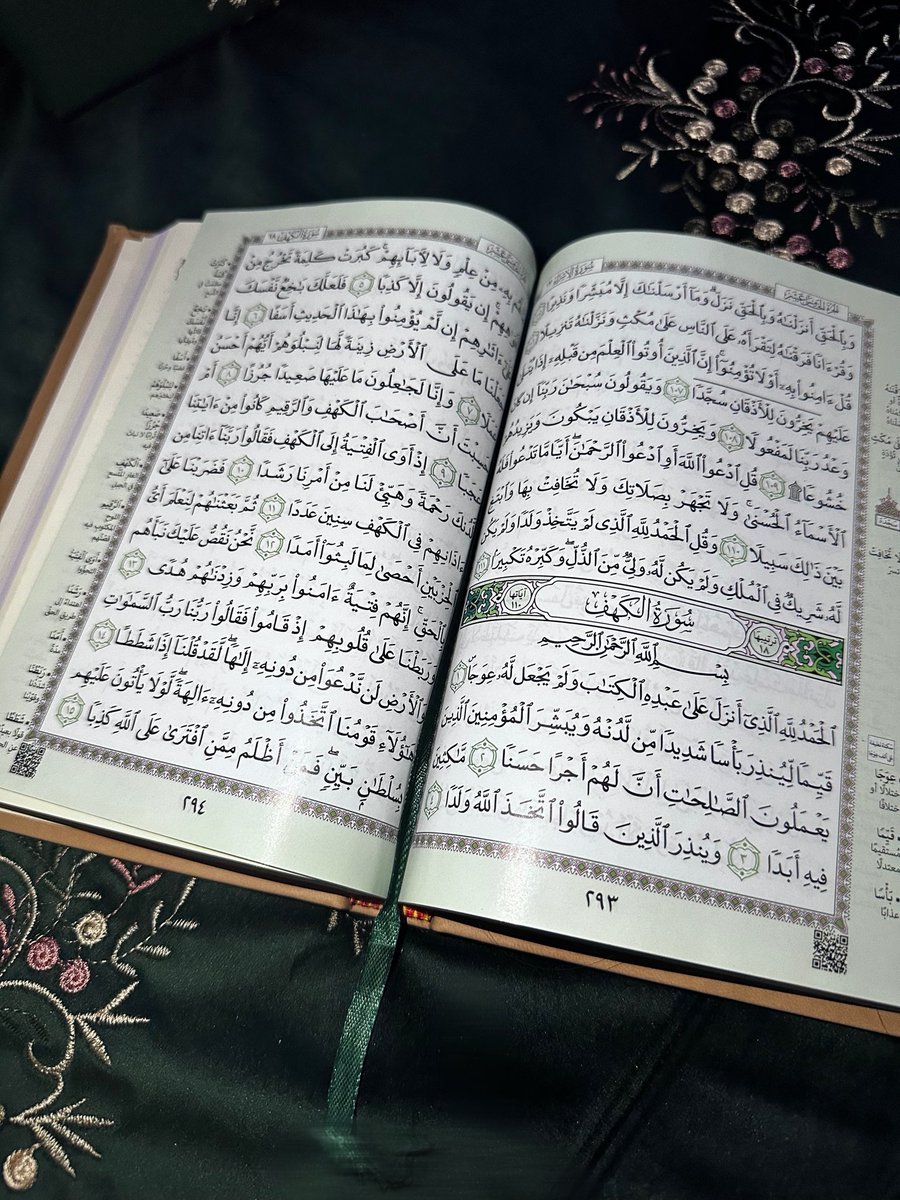 وَبِٱلْحَقِّ أَنزَلْنَٰهُ وَبِٱلْحَقِّ نَزَلَ ۗ وَمَآ أَرْسَلْنَٰكَ إِلَّا مُبَشِّرًا وَنَذِيرًا
وَقُرْءَانًا فَرَقْنَٰهُ لِتَقْرَأَهُۥ عَلَى ٱلنَّاسِ عَلَىٰ مُكْثٍ وَنَزَّلْنَٰهُ تَنزِيلًا
قُلْ ءَامِنُوا۟ بِهِۦٓ أَوْ لَا تُؤْمِنُوٓا۟ ۚ إِنَّ ٱلَّذِينَ أُوتُوا۟ ٱلْعِلْمَ مِن قَبْلِهِۦٓ إِذَا
عَلَيْهِمْ يَخِرُّونَ لِلْأَذْقَانِ سُجَّدًا ١٠٧ وَيَقُولُونَ سُبْحَٰنَ رَبِّنَآ إِن كَانَ
وَعْدُ رَبِّنَا لَمَفْعُولًا ١٠٨ وَيَخِرُّونَ لِلْأَذْقَانِ يَبْكُونَ وَيَزِيدُهُمْ
خُشُوعًا ۩ ١٠٩ قُلِ ٱدْعُوا۟ ٱللَّهَ أَوِ ٱدْعُوا۟ ٱلرَّحْمَٰنَ ۖ أَيًّا مَّا تَدْعُوا۟ فَلَهُ
ٱلْأَسْمَآءُ ٱلْحُسْنَىٰ ۚ وَلَا تَجْهَرْ بِصَلَاتِكَ وَلَا تُخَافِتْ بِهَا وَٱبْتَغِ
بَيْنَ ذَٰلِكَ سَبِيلًا ١١٠ وَقُلِ ٱلْحَمْدُ لِلَّهِ ٱلَّذِى لَمْ يَتَّخِذْ وَلَدًا وَلَمْ يَكُن
لَّهُۥ شَرِيكٌ فِى ٱلْمُلْكِ وَلَمْ يَكُن لَّهُۥ وَلِىٌّ مِّنَ ٱلذُّلِّ ۖ وَكَبِّرْهُ تَكْبِيرًۢا ١١١
ترتيبها ١٨ سُورَةُ ٱلْكَهْفِ آياتها ١١٠
بِسْمِ ٱللَّهِ ٱلرَّحْمَٰنِ ٱلرَّحِيمِ
ٱلْحَمْدُ لِلَّهِ ٱلَّذِىٓ أَنزَلَ عَلَىٰ عَبْدِهِ ٱلْكِتَٰبَ وَلَمْ يَجْعَل لَّهُۥ عِوَجَا ۜ ١
قَيِّمًا لِّيُنذِرَ بَأْسًا شَدِيدًا مِّن لَّدُنْهُ وَيُبَشِّرَ ٱلْمُؤْمِنِينَ ٱلَّذِينَ
يَعْمَلُونَ ٱلصَّٰلِحَٰتِ أَنَّ لَهُمْ أَجْرًا حَسَنًا ٢ مَّٰكِثِينَ
فِيهِ أَبَدًا ٣ وَيُنذِرَ ٱلَّذِينَ قَالُوا۟ ٱتَّخَذَ ٱللَّهُ وَلَدًا ٤
٢٩٣
عِوَجَا
قَيِّمًا
مستقيمًا
معتدلًا
بَأْسًا
عذابًا
سُورَةُ الكَهْفِ ١٨
بِهِۦ مِنْ عِلْمٍ وَلَا لِـَٔابَآئِهِمْ ۚ كَبُرَتْ كَلِمَةً تَخْرُجُ مِنْ
إِن يَقُولُونَ إِلَّا كَذِبًا ٥ فَلَعَلَّكَ بَٰخِعٌ نَّفْسَكَ
ءَاثَٰرِهِمْ إِن لَّمْ يُؤْمِنُوا۟ بِهَٰذَا ٱلْحَدِيثِ أَسَفًا ٦ إِنَّا
مَا عَلَى ٱلْأَرْضِ زِينَةً لَّهَا لِنَبْلُوَهُمْ أَيُّهُمْ أَحْسَنُ
٧ وَإِنَّا لَجَٰعِلُونَ مَا عَلَيْهَا صَعِيدًا جُرُزًا ٨ أَمْ
حَسِبْتَ أَنَّ أَصْحَٰبَ ٱلْكَهْفِ وَٱلرَّقِيمِ كَانُوا۟ مِنْ ءَايَٰتِنَا
عَجَبًا ٩ إِذْ أَوَى ٱلْفِتْيَةُ إِلَى ٱلْكَهْفِ فَقَالُوا۟ رَبَّنَآ ءَاتِنَا مِن
لَّدُنكَ رَحْمَةً وَهَيِّئْ لَنَا مِنْ أَمْرِنَا رَشَدًا ١٠ فَضَرَبْنَا عَلَىٰٓ
ءَاذَانِهِمْ فِى ٱلْكَهْفِ سِنِينَ عَدَدًا ١١ ثُمَّ بَعَثْنَٰهُمْ لِنَعْلَمَ أَىُّ
ٱلْحِزْبَيْنِ أَحْصَىٰ لِمَا لَبِثُوٓا۟ أَمَدًا ١٢ نَّحْنُ نَقُصُّ عَلَيْكَ نَبَأَهُم
بِٱلْحَقِّ ۚ إِنَّهُمْ فِتْيَةٌ ءَامَنُوا۟ بِرَبِّهِمْ وَزِدْنَٰهُمْ هُدًى ١٣
وَرَبَطْنَا عَلَىٰ قُلُوبِهِمْ إِذْ قَامُوا۟ فَقَالُوا۟ رَبُّنَا رَبُّ ٱلسَّمَٰوَٰتِ
وَٱلْأَرْضِ لَن نَّدْعُوَا۟ مِن دُونِهِۦٓ إِلَٰهًا ۖ لَّقَدْ قُلْنَآ إِذًا شَطَطًا ١٤
هَٰٓؤُلَآءِ قَوْمُنَا ٱتَّخَذُوا۟ مِن دُونِهِۦٓ ءَالِهَةً ۖ لَّوْلَا يَأْتُونَ عَلَيْهِم
بِسُلْطَٰنٍۭ بَيِّنٍ ۖ فَمَنْ أَظْلَمُ مِمَّنِ ٱفْتَرَىٰ عَلَى ٱللَّهِ كَذِبًا ١٥
٢٩٤